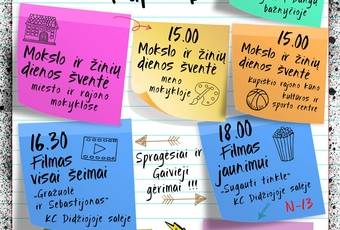 bažnyčioje
Mokslo ir žinių
dienos šventė
miesto ir rajono
mokyklose
15.00
Mokslo ir žinių
dienos šventė
meno
mokykloje
15.00
Mokslo ir žinių
dienos šventė
kupiškio rajono kūno
kultūros ir
sporto centre
16.30
Filmas
visai šeimai
„Gražuolė
ir Sebastijonas"
KC Didžiojoje salėje
Spragėsiai ir
Gaivieji
gėrimai !!!
18.00
Filmas
jaunimui
„Sugauti tinkle"
KC Didžiojoje salėje
N-13